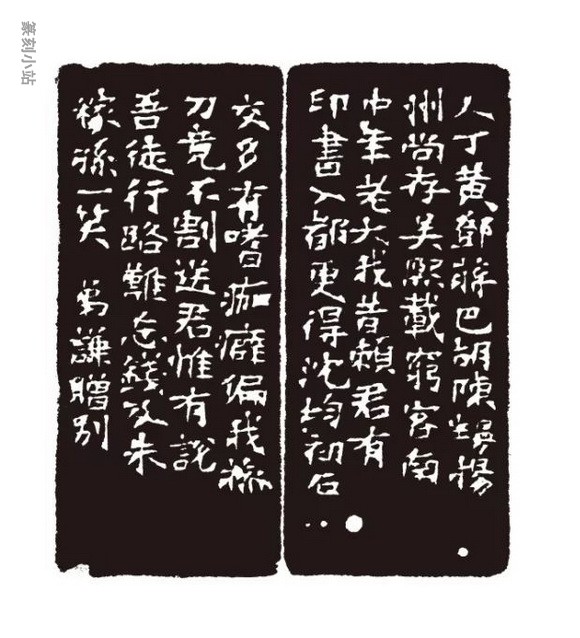 篆刻小站
人丁黃鄧蔣巴胡陳揚
州尚存吳熙載窮客南
中年老大我昔賴君有
印書入都更得沈均初石
交多有嗜痂癖偏我操
刀竟不割送君惟有說
吾徒行路難忘錢及朱
稼孫一笑 謙贈別